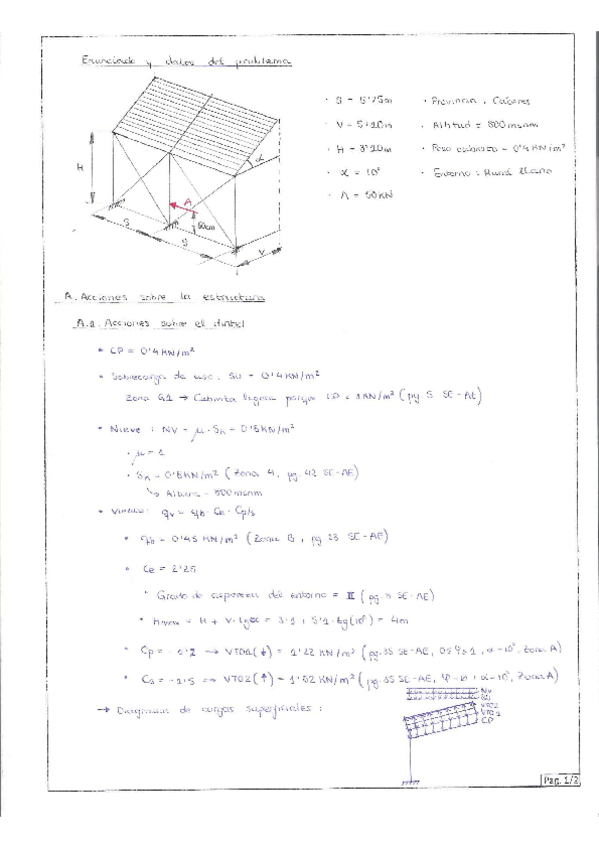 Enunciado y datos del problema
· S = 5'75m
· V = 5'10m
· H = 3'10m
· α = 10°
· A = 50KN
· Provincia : Cáceres
· Altitud = 800 msnm
· Peso cubierta = 0'4 KN/m²
· Entorno : Rural llano
H
α
A
50cm
S
S
V
A. Acciones sobre la estructura
A.1. Acciones sobre el dintel
• CP = 0'4 KN/m²
• Sobrecarga de uso : SU = 0'4 KN/m²
Zona G1 → Cubierta ligera porque CP < 1KN/m² (pg. 5 SE-AE)
• Nieve : NV = μ · Sk = 0'5KN/m²
· μ = 1
· Sk = 0'5KN/m² (Zona 4, pg. 42 SE-AE)
↳ Altura = 800msnm
• Viento : qv = qb · Ce · Cp/s
• qb = 0'45 KN/m² (Zona B, pg 23 SE-AE)
• Ce =
• Grado de aspereza del entorno = II (pg. SE-AE)
• = H + V · tgα = 3'1 + 5'1 · tg(10°) = 4m
• Cp = → VTO1(↓) = KN/m² (pg. 35 SE-AE, α=10°, Zona A)
• Cs = → VTO2(↑) = KN/m² (pg. 35 SE-AE, α=10°, Zona A)
→ Diagrama de cargas superficiales :
NV
SU
VTO2
VTO1
CP
Pág. 1/2